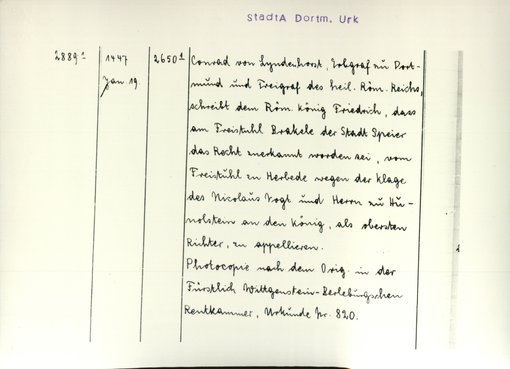 StadtA Dortm. Urk
2889a 1447 2650d Conrad von Lyndenhorst, Erbgraf zu Dort-
Jan. 19. mund und Freigraf des heil. Röm. Reichs,
schreibt dem Röm. König Friedrich, dass
am Freistuhl Brakele der Stadt Speier
das Recht zuerkannt worden sei, vom
Freistuhl zu Herbede wegen der Klage
des Nicolaus Vogt und Herrn zu Hu-
nolstein an den König, als obersten
Richter, zu appellieren.
Photocopie nach dem Orig. in der
Fürstlich Wittgenstein-Berleburgschen
Rentkammer, Urkunde Nr. 820.